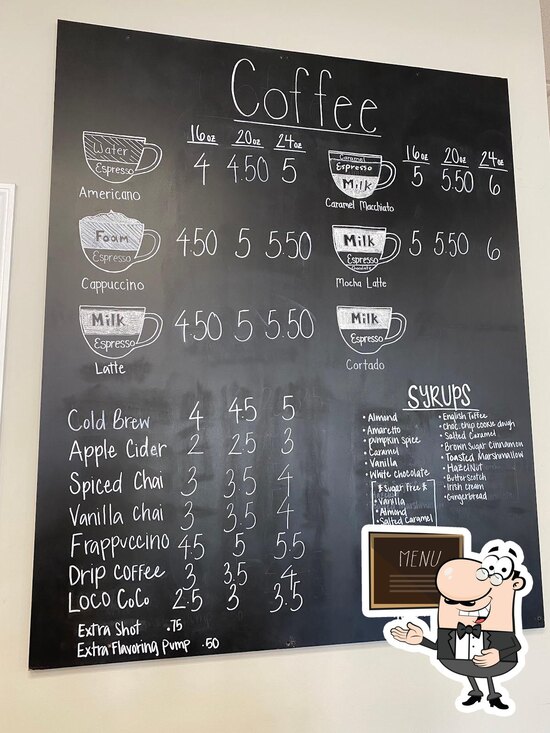 Coffee
16oz 20oz 24oz
Water
Espresso
4 4.50 5
Americano
Foam
Espresso
4.50 5 5.50
Cappuccino
Milk
Espresso
4.50 5 5.50
Latte
16oz 20oz 24oz
Caramel
Espresso
Milk
5 5.50 6
Caramel Macchiato
Milk
Espresso
Chocolate
5 5.50 6
Mocha Latte
Milk
Espresso
Cortado
Cold Brew 4 4.5 5
Apple Cider 2 2.5 3
Spiced Chai 3 3.5 4
Vanilla chai 3 3.5 4
Frappuccino 4.5 5 5.5
Drip coffee 3 3.5 4
Loco CoCo 2.5 3 3.5
Extra Shot .75
Extra Flavoring Pump .50
SYRUPS
• Almond
• Amaretto
• pumpkin Spice
• Caramel
• Vanilla
• White chocolate
* Sugar Free *
• Vanilla
• Almond
• Salted Caramel
• English Toffee
• Choc. chip cookie dough
• Salted Caramel
• Brown Sugar Cinnamon
• Toasted Marshmallow
• Hazelnut
• Butterscotch
• Irish cream
• Gingerbread
MENU